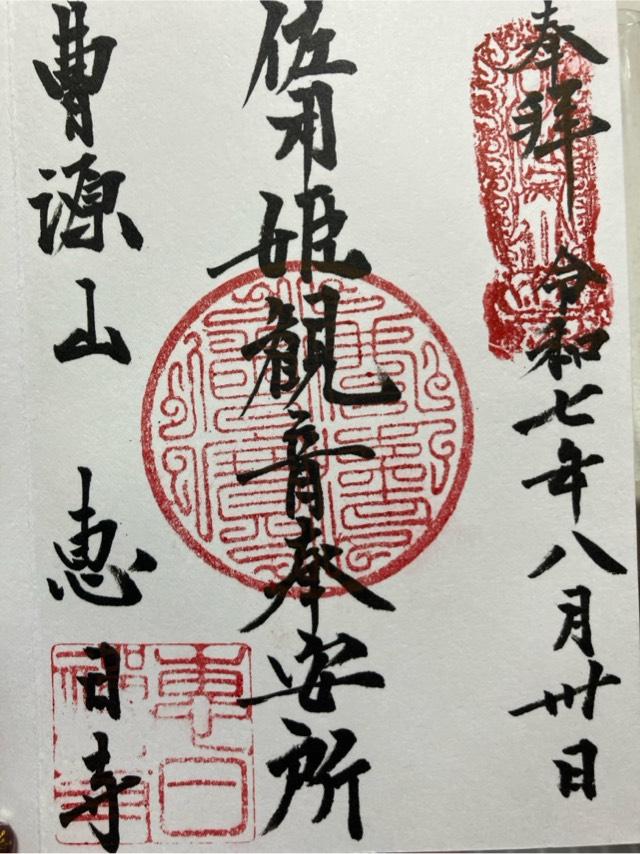 奉拝 令和七年八月卅日
佐用姫観音奉安所
曹源山 恵日寺